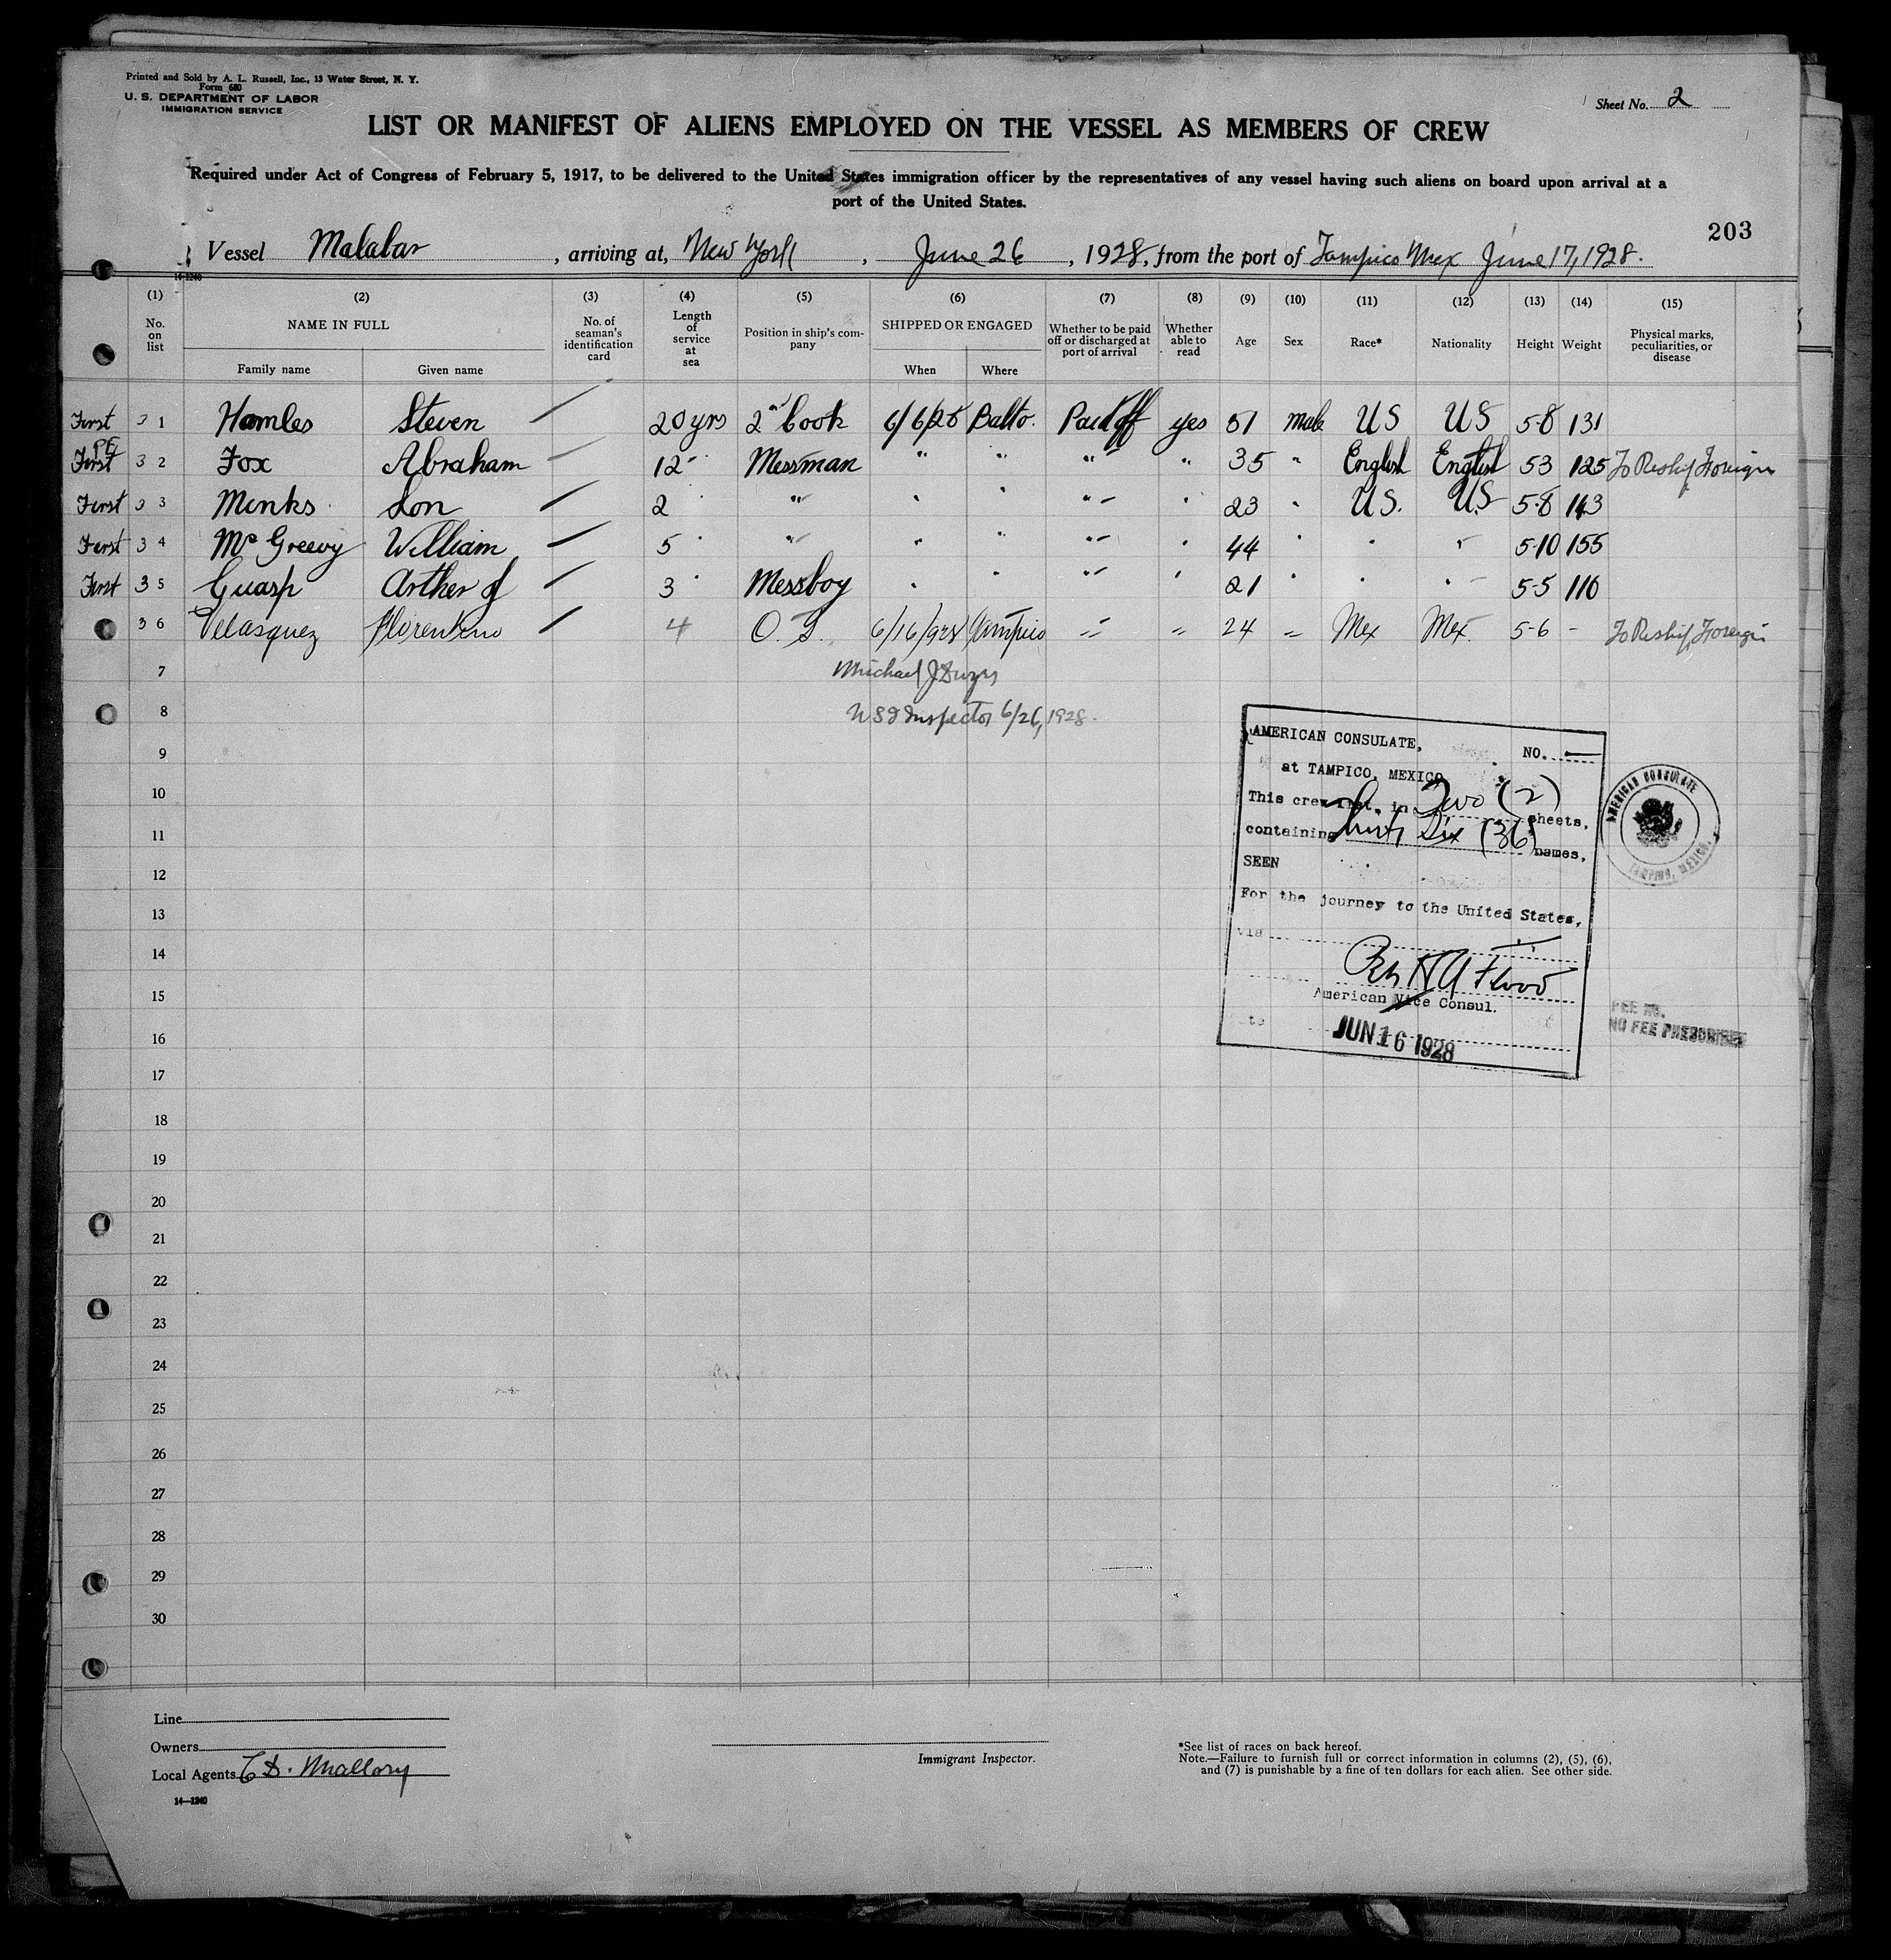 Printed and Sold by A. L. Russell, Inc., 13 Water Street, N. Y.
Form 680
U. S. DEPARTMENT OF LABOR
IMMIGRATION SERVICE
Sheet No. 2
LIST OR MANIFEST OF ALIENS EMPLOYED ON THE VESSEL AS MEMBERS OF CREW
Required under Act of Congress of February 5, 1917, to be delivered to the United States immigration officer by the representatives of any vessel having such aliens on board upon arrival at a
port of the United States.
203
Vessel Malabar, arriving at, New York, June 26, 1928, from the port of Tampico Mex June 17, 1928.
14-1240
(1) (2) (3) (4) (5) (6) (7) (8) (9) (10) (11) (12) (13) (14) (15)
No. on list NAME IN FULL No. of seaman's identification card Length of service at sea Position in ship's company SHIPPED OR ENGAGED Whether to be paid off or discharged at port of arrival Whether able to read Age Sex Race* Nationality Height Weight Physical marks, peculiarities, or disease
Family name Given name When Where
First 3 1 Steven 20 yrs 2nd Cook 6/6/28 Balto. Paid off yes 51 male US US 5-8 131
First PE 3 2 Fox Abraham 12 " Messman " " " " 35 " English English 53 125 To Reship Foreign
First 3 3 Menks Lon 2 " " " " " " 23 " U.S. U.S 5-8 143
First 3 4 McGreevy William 5 " " " " " " 44 " " " 5-10 155
First 3 5 Guasp Arther J 3 " Messboy " " " " 21 " " " 5-5 110
3 6 Velasquez Florentino 4 O. S. 6/16/928 Tampico " " 24 " Mex Mex. 5-6 - To Reship Foreign
7
Michael J
8
USI Inspector 6/26, 1928.
9
10
11
12
13
14
15
16
17
18
19
20
21
22
23
24
25
26
27
28
29
30
AMERICAN CONSULATE, NO. —
at TAMPICO, MEXICO
This crew list, in Two (2) sheets,
containing Thirty Six (36) names,
SEEN
For the journey to the United States,
via
American Vice Consul.
JUN 16 1928
AMERICAN CONSULATE
TAMPICO, MEXICO
FEE NO.
NO FEE PRESCRIBED
Line
Owners
Local Agents C.D. Mallory
14—1240
Immigrant Inspector.
*See list of races on back hereof.
Note.—Failure to furnish full or correct information in columns (2), (5), (6),
and (7) is punishable by a fine of ten dollars for each alien. See other side.